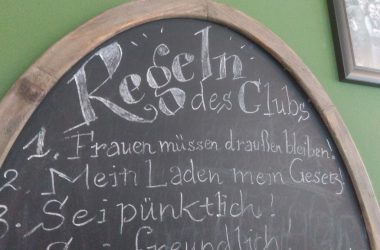 Regeln
des Clubs
1. Frauen müssen draußen bleiben!
2. Mein Laden mein Gesetz!
3. Sei pünktlich!
freundlich!